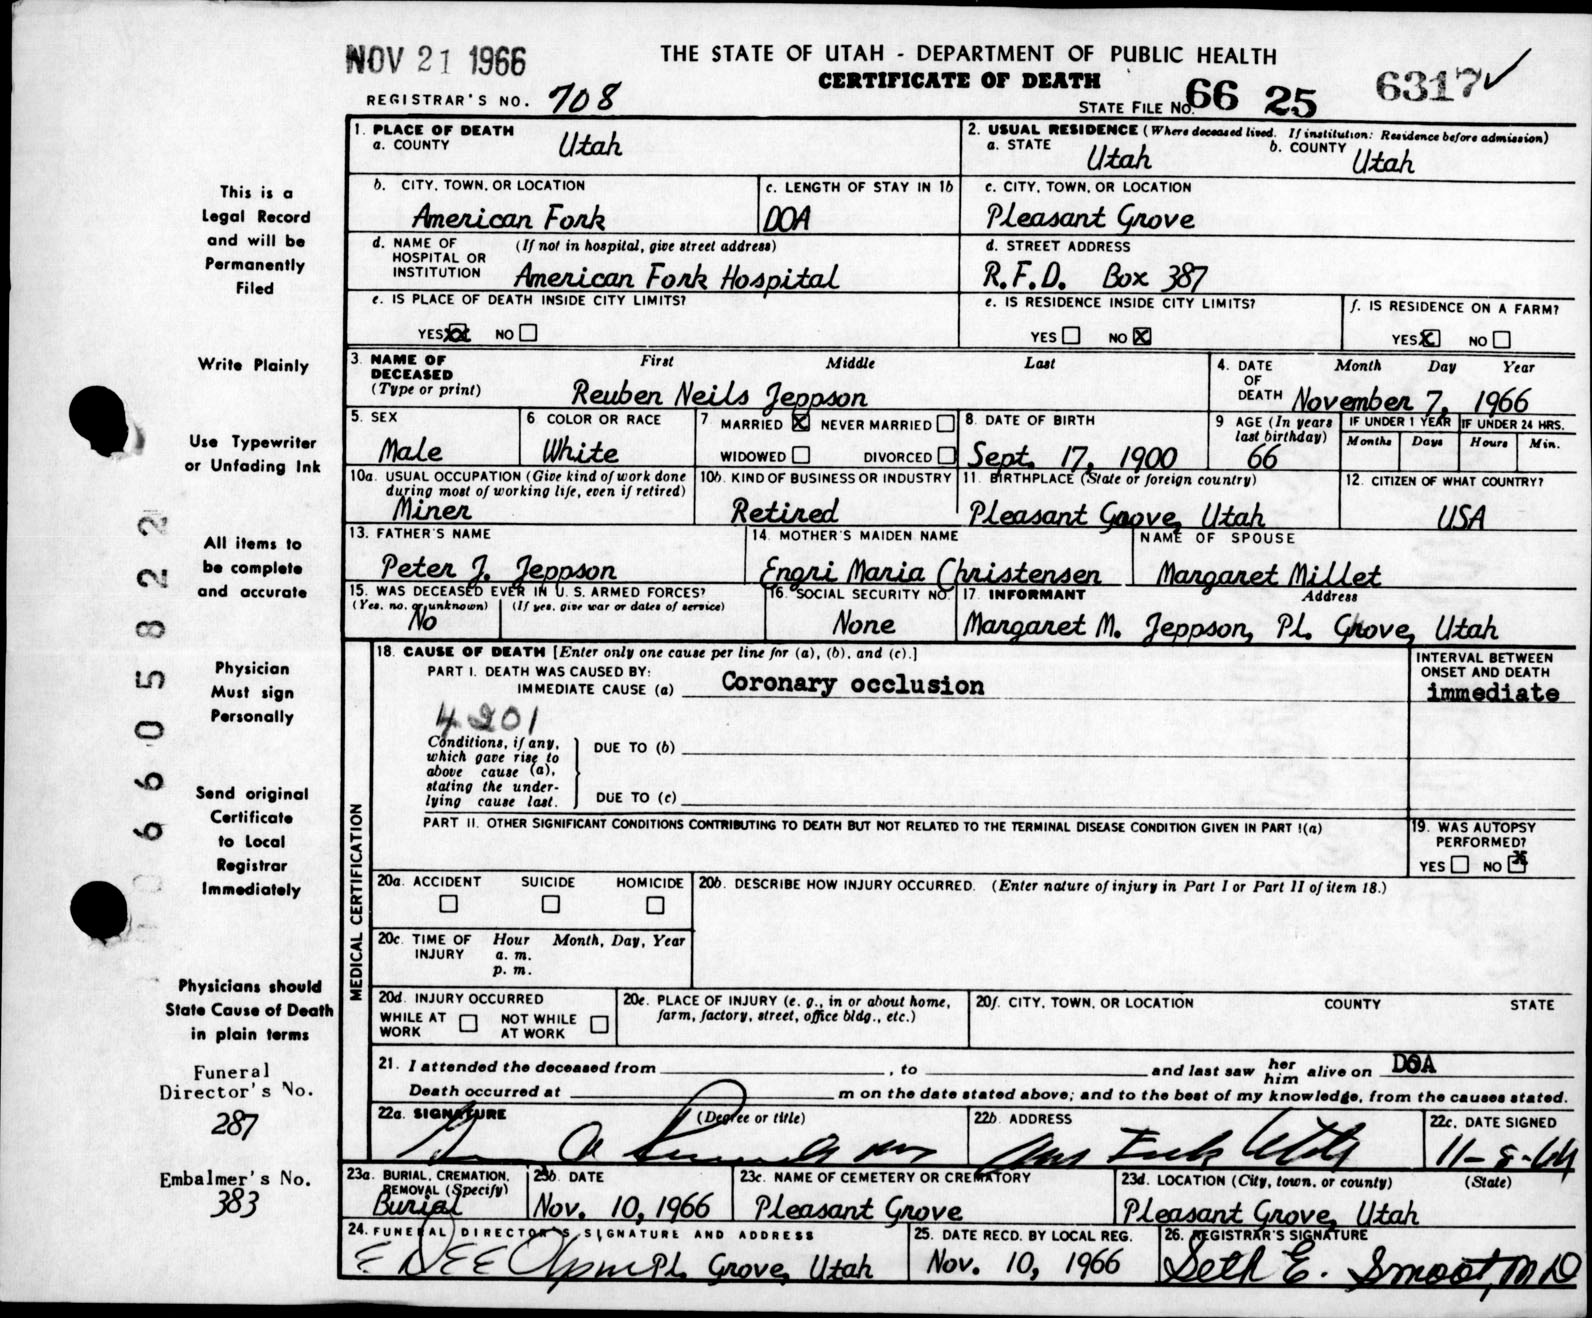 NOV 21 1966
THE STATE OF UTAH - DEPARTMENT OF PUBLIC HEALTH
CERTIFICATE OF DEATH
REGISTRAR'S NO. 708
STATE FILE NO. 66 25 6317 ✓
This is a
Legal Record
and will be
Permanently
Filed
Write Plainly
Use Typewriter
or Unfading Ink
All items to
be complete
and accurate
Physician
Must sign
Personally
Send original
Certificate
to Local
Registrar
Immediately
Physicians should
State Cause of Death
in plain terms
Funeral
Director's No.
287
Embalmer's No.
383
6605822
1. PLACE OF DEATH
a. COUNTY Utah
2. USUAL RESIDENCE (Where deceased lived. If institution: Residence before admission)
a. STATE Utah b. COUNTY Utah
b. CITY, TOWN, OR LOCATION American Fork
c. LENGTH OF STAY IN 1b DOA
c. CITY, TOWN, OR LOCATION Pleasant Grove
d. NAME OF HOSPITAL OR INSTITUTION (If not in hospital, give street address) American Fork Hospital
d. STREET ADDRESS R.F.D. Box 387
e. IS PLACE OF DEATH INSIDE CITY LIMITS?
YES XX NO
e. IS RESIDENCE INSIDE CITY LIMITS?
YES NO X
f. IS RESIDENCE ON A FARM?
YES X NO
3. NAME OF DECEASED (Type or print) First Middle Last
Reuben Neils Jeppson
4. DATE OF DEATH Month Day Year
November 7, 1966
5. SEX Male
6 COLOR OR RACE White
7 MARRIED X NEVER MARRIED
WIDOWED DIVORCED
8. DATE OF BIRTH Sept. 17, 1900
9 AGE (In years last birthday) 66
IF UNDER 1 YEAR Months Days
IF UNDER 24 HRS. Hours Min.
10a. USUAL OCCUPATION (Give kind of work done during most of working life, even if retired) Miner
10b. KIND OF BUSINESS OR INDUSTRY Retired
11. BIRTHPLACE (State or foreign country) Pleasant Grove, Utah
12. CITIZEN OF WHAT COUNTRY? USA
13. FATHER'S NAME Peter J. Jeppson
14. MOTHER'S MAIDEN NAME Engri Maria Christensen
NAME OF SPOUSE Margaret Millet
15. WAS DECEASED EVER IN U.S. ARMED FORCES?
(Yes, no, or unknown) (If yes, give war or dates of service)
No
16. SOCIAL SECURITY NO. None
17. INFORMANT Address
Margaret M. Jeppson, Pl. Grove, Utah
MEDICAL CERTIFICATION
18. CAUSE OF DEATH [Enter only one cause per line for (a), (b), and (c).]
PART I. DEATH WAS CAUSED BY:
IMMEDIATE CAUSE (a) Coronary occlusion
INTERVAL BETWEEN ONSET AND DEATH
immediate
4201
Conditions, if any, which gave rise to above cause (a), stating the underlying cause last.
DUE TO (b)
DUE TO (c)
PART II. OTHER SIGNIFICANT CONDITIONS CONTRIBUTING TO DEATH BUT NOT RELATED TO THE TERMINAL DISEASE CONDITION GIVEN IN PART I(a)
19. WAS AUTOPSY PERFORMED?
YES NO X
20a. ACCIDENT SUICIDE HOMICIDE
20b. DESCRIBE HOW INJURY OCCURRED. (Enter nature of injury in Part I or Part II of item 18.)
20c. TIME OF INJURY Hour Month, Day, Year
a. m.
p. m.
20d. INJURY OCCURRED
WHILE AT WORK NOT WHILE AT WORK
20e. PLACE OF INJURY (e. g., in or about home, farm, factory, street, office bldg., etc.)
20f. CITY, TOWN, OR LOCATION COUNTY STATE
21. I attended the deceased from , to and last saw her him alive on DOA
Death occurred at m on the date stated above; and to the best of my knowledge, from the causes stated.
22a. SIGNATURE (Degree or title)
22b. ADDRESS
22c. DATE SIGNED
23a. BURIAL, CREMATION, REMOVAL (Specify) Burial
23b. DATE Nov. 10, 1966
23c. NAME OF CEMETERY OR CREMATORY Pleasant Grove
23d. LOCATION (City, town, or county) (State)
Pleasant Grove, Utah
24. FUNERAL DIRECTOR'S SIGNATURE AND ADDRESS
Pl. Grove, Utah
25. DATE RECD. BY LOCAL REG. Nov. 10, 1966
26. REGISTRAR'S SIGNATURE
Seth E. Smoot, MD